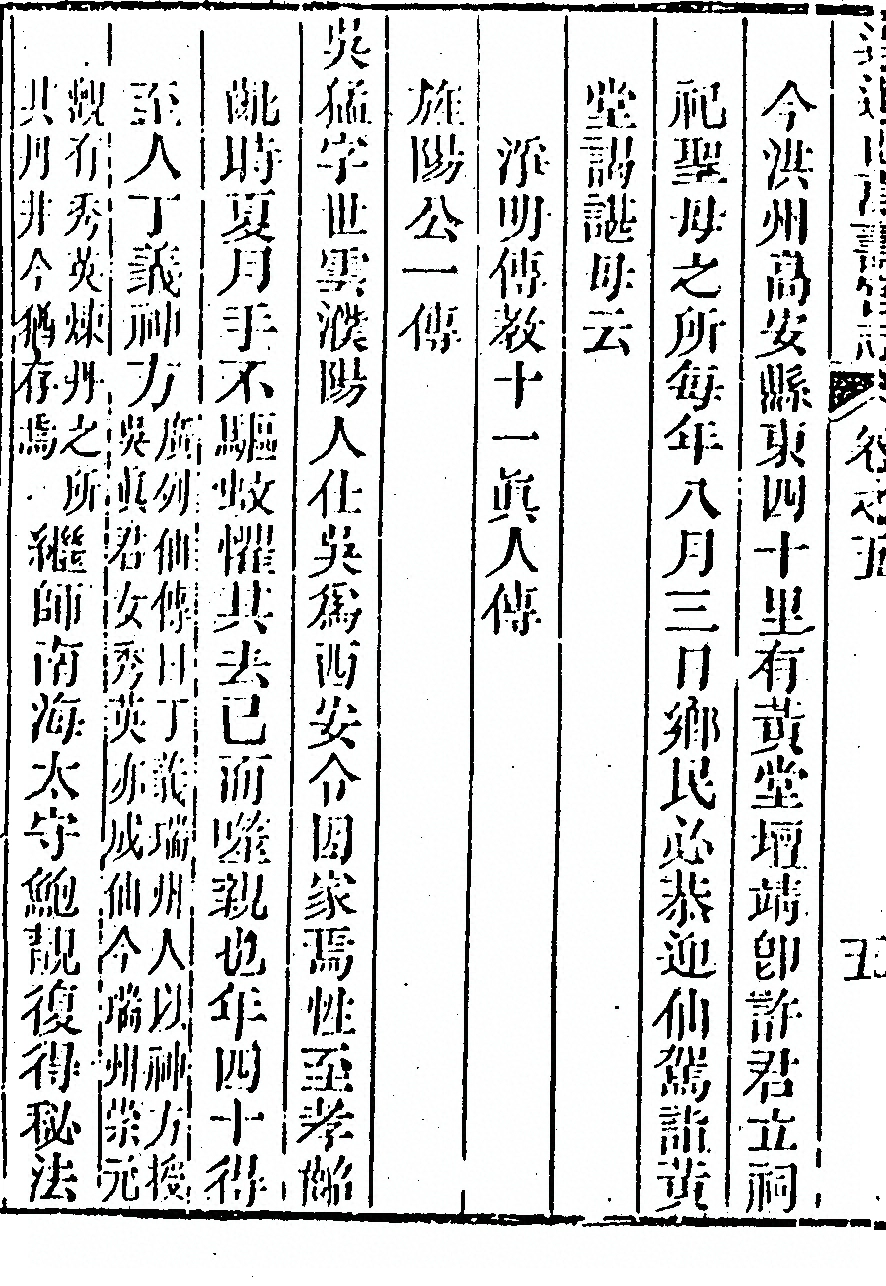 今洪州高安縣東四十里有黃堂壇靖卽許君立祠
祀聖母之所每年八月三日鄉民必恭迎仙駕詣黃
堂謁諶母云
淨明傳教十一眞人傳
旌陽公一傳
吳猛字世雲濮陽人仕吳爲西安令因家焉性至孝
齓時夏月手不驅蚊懼其去己而噬親也年四十得
至人丁義神方
廣列仙傳曰丁義瑞州人以神方授
吳眞君女秀英亦成仙今瑞州崇元
觀有秀英煉丹之所
其丹井今猶存焉
繼師南海太守鮑靚復得秘法
卷之五
五